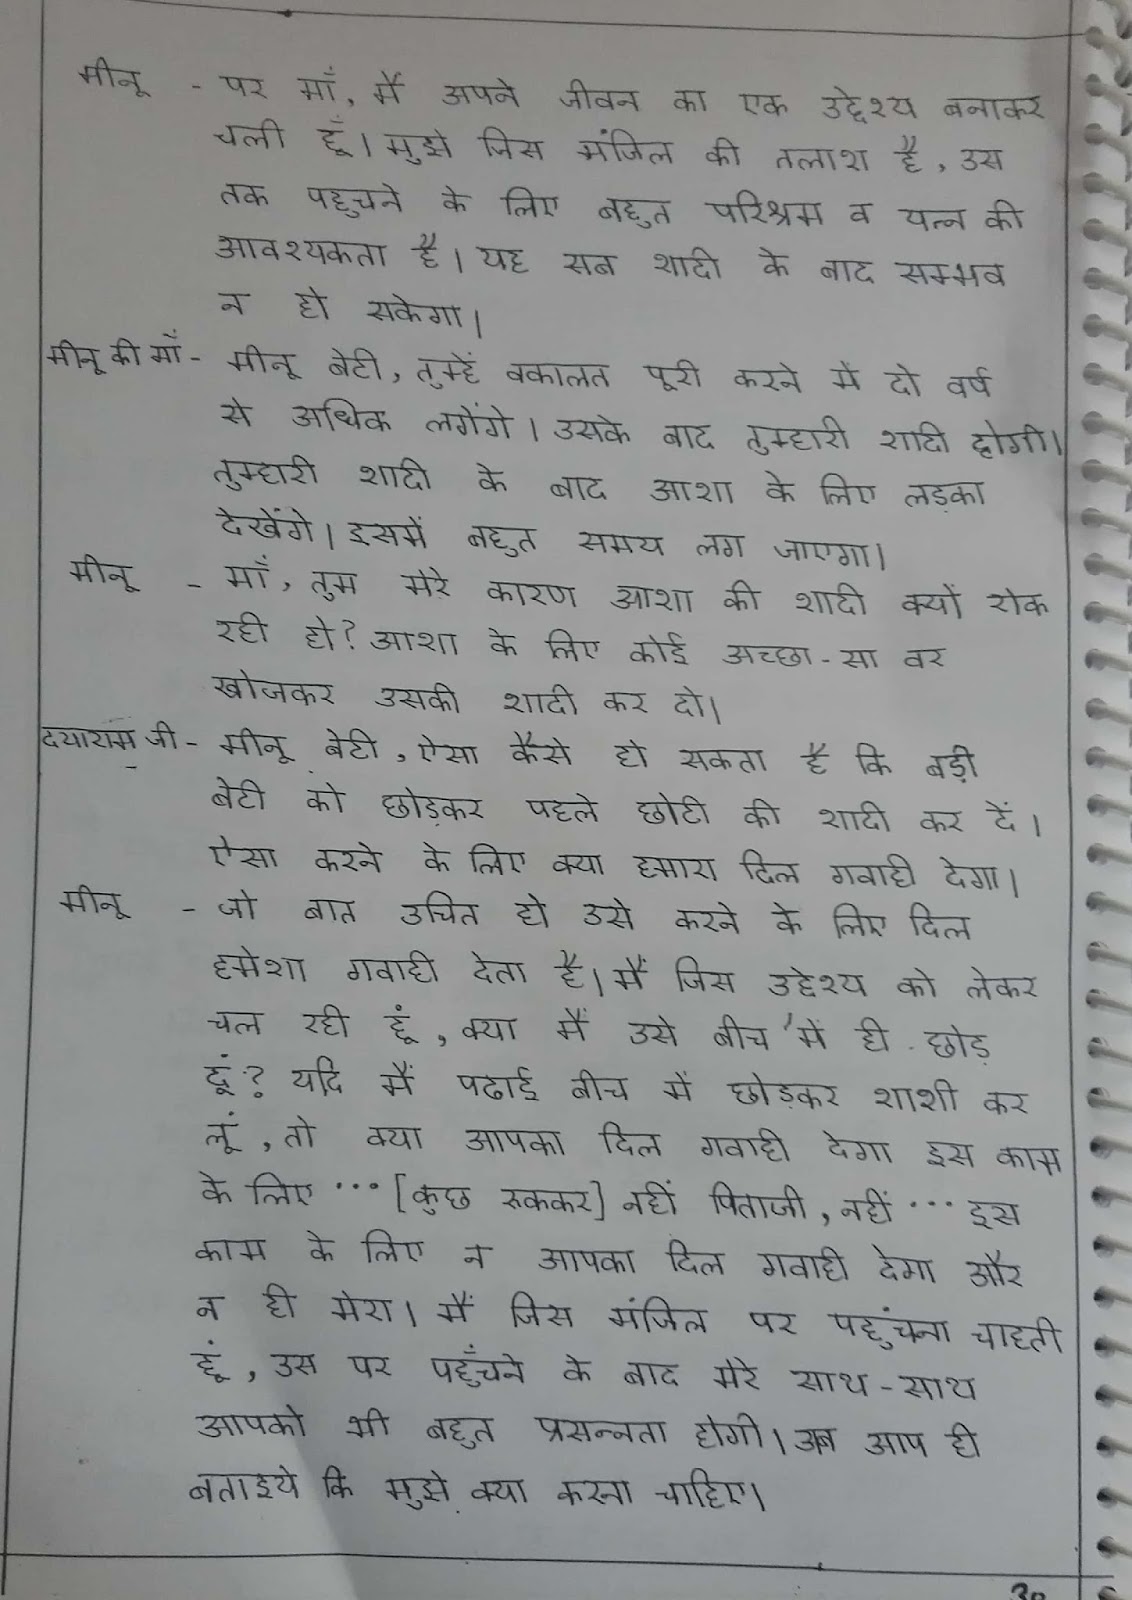 मीनू - पर माँ, मैं अपने जीवन का एक उद्देश्य बनाकर
चली हूँ। मुझे जिस मंजिल की तलाश है, उस
तक पहुचने के लिए बहुत परिश्रम व यत्न की
आवश्यकता है। यह सब शादी के बाद सम्भव
न हो सकेगा।
मीनू की माँ - मीनू बेटी, तुम्हें वकालत पूरी करने में दो वर्ष
से अधिक लगेंगे। उसके बाद तुम्हारी शादी होगी।
तुम्हारी शादी के बाद आशा के लिए लड़का
देखेंगे। इसमें बहुत समय लग जाएगा।
मीनू - माँ, तुम मेरे कारण आशा की शादी क्यों रोक
रही हो? आशा के लिए कोई अच्छा-सा वर
खोजकर उसकी शादी कर दो।
दयाराम जी - मीनू बेटी, ऐसा कैसे हो सकता है कि बड़ी
बेटी को छोड़कर पहले छोटी की शादी कर दें।
ऐसा करने के लिए क्या हमारा दिल गवाही देगा।
मीनू - जो बात उचित हो उसे करने के लिए दिल
हमेशा गवाही देता है। मैं जिस उद्देश्य को लेकर
चल रही हूं, क्या मैं उसे बीच में ही छोड़
दूं? यदि मैं पढाई बीच में छोड़कर शाशी कर
लूं, तो क्या आपका दिल गवाही देगा इस काम
के लिए ... [कुछ रुककर] नहीं पिताजी, नहीं ... इस
काम के लिए न आपका दिल गवाही देगा और
न ही मेरा। मैं जिस मंजिल पर पहुंचना चाहती
हूं, उस पर पहुँचने के बाद मेरे साथ-साथ
आपको भी बहुत प्रसन्नता होगी। अब आप ही
बताइये कि मुझे क्या करना चाहिए।